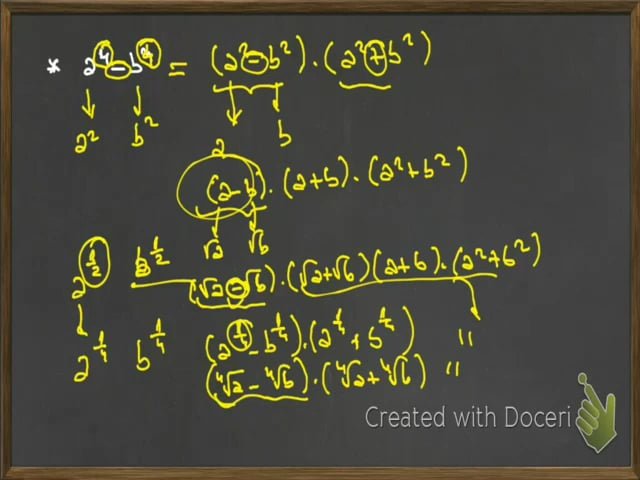 * a⁴ - b⁴ = (a² - b²) · (a² + b²)
a² b² a b
(a - b) · (a + b) · (a² + b²)
√a √b
a^1/2 b^1/2 (√a - √b) · (√a + √b) (a + b) · (a² + b²)
a^1/4 b^1/4 (a^1/4 - b^1/4) · (a^1/4 + b^1/4) "
(⁴√a - ⁴√b) · (⁴√a + ⁴√b) "
Created with Doceri